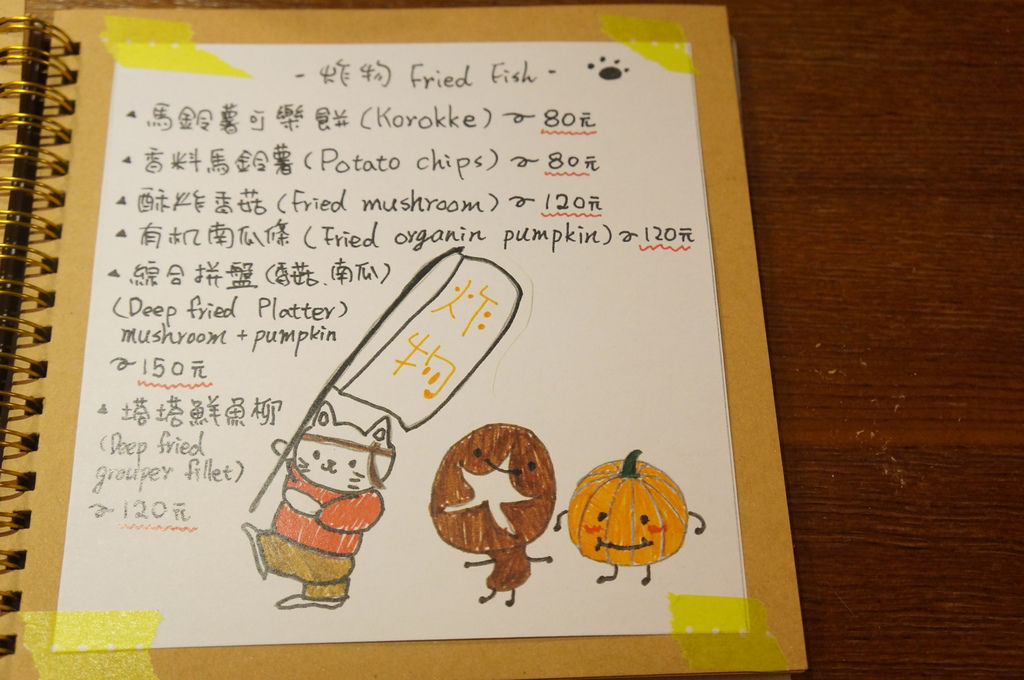 - 炸物 Fried Fish -
▲ 馬鈴薯可樂餅 (Korokke) ~ 80元
▲ 香料馬鈴薯 (Potato chips) ~ 80元
▲ 酥炸香菇 (Fried mushroom) ~ 120元
▲ 有机南瓜條 (Fried organin pumpkin) ~ 120元
▲ 綜合拼盤 (香菇、南瓜)
(Deep fried Platter)
mushroom + pumpkin
~ 150元
▲ 塔塔鮮魚柳
(Deep fried
grouper fillet)
~ 120元
炸物